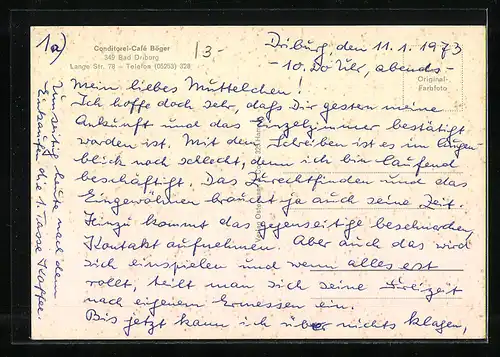 1a)
Conditorei-Café Böger
349 Bad Driburg
Lange Str. 78 – Telefon (05253) 328
13-
Driburg, den 11.1.1973
-10.00 Uhr, abends-
Original-
Farbfoto
Mein liebes Muttelchen!
Ich hoffe doch sehr, daß Dir gestern meine
Ankunft und das Einzelzimmer bestätigt
worden ist. Mit dem Schreiben ist es im Augen-
blick noch schlecht, denn ich bin laufend
beschäftigt. Das Zurechtfinden und das
Eingewöhnen braucht ja auch seine Zeit.
Hinzu kommt das gegenseitige
Kontakt aufnehmen. Aber auch das wird
sich einspielen und wenn alles erst
rollt, teilt man sich seine Freizeit
nach eigenem Ermessen ein.
Bis jetzt kann ich über nichts klagen,
Umseitig heute nach dem
Einkaufen die 1. Tasse Kaffee.